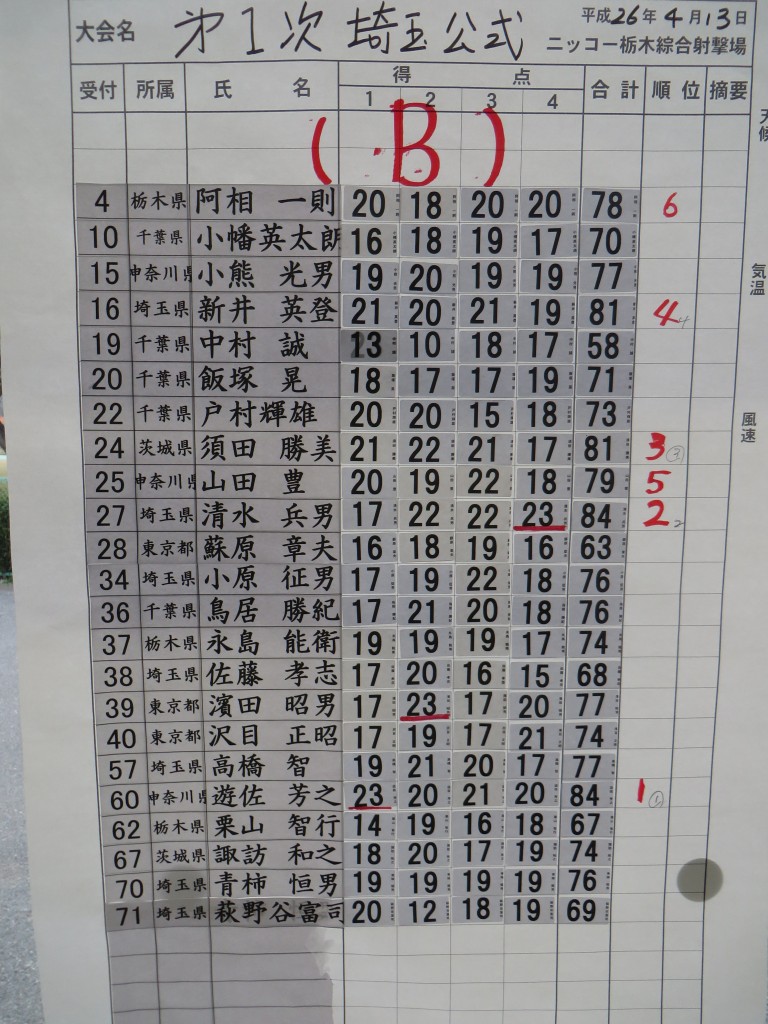 大会名 第1次 埼玉公式 平成26年4月13日
ニッコー栃木綜合射撃場
受付 所属 氏名 得点 合計 順位 摘要
1 2 3 4
(B)
天候
4 栃木県 阿相 一則 20 18 20 20 78 6
10 千葉県 小幡英太朗 16 18 19 17 70
15 神奈川県 小熊 光男 19 20 19 19 77
気温
16 埼玉県 新井 英登 21 20 21 19 81 4
19 千葉県 中村 誠 13 10 18 17 58
20 千葉県 飯塚 晃 18 17 17 19 71
22 千葉県 戸村輝雄 20 20 15 18 73
風速
24 茨城県 須田 勝美 21 22 21 17 81 3 ③
25 神奈川県 山田 豊 20 19 22 18 79 5
27 埼玉県 清水 兵男 17 22 22 23 84 2 2
28 東京都 蘇原 章夫 16 18 19 16 63
34 埼玉県 小原 征男 17 19 22 18 76
36 千葉県 鳥居 勝紀 17 21 20 18 76
37 栃木県 永島 能衛 19 19 19 17 74
38 埼玉県 佐藤 孝志 17 20 16 15 68
39 東京都 濱田 昭男 17 23 17 20 77
40 東京都 沢目 正昭 17 19 17 21 74
57 埼玉県 高橋 智 19 21 20 17 77
60 神奈川県 遊佐 芳之 23 20 21 20 84 1 ①
62 栃木県 栗山 智行 14 19 16 18 67
67 茨城県 諏訪 和之 18 20 17 19 74
70 埼玉県 青柿 恒男 19 19 19 19 76
71 埼玉県 萩野谷富司 20 12 18 19 69